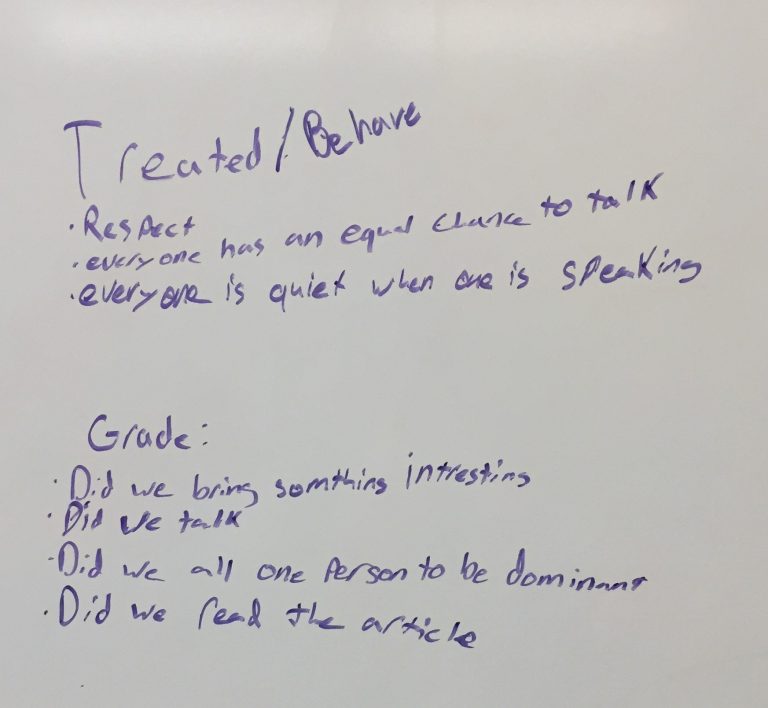 Treated/Behave
· Respect
· everyone has an equal chance to talk
· everyone is quiet when one is speaking
Grade:
· Did we bring somthing intresting
· Did we talk
· Did we all one person to be dominant
· Did we read the article